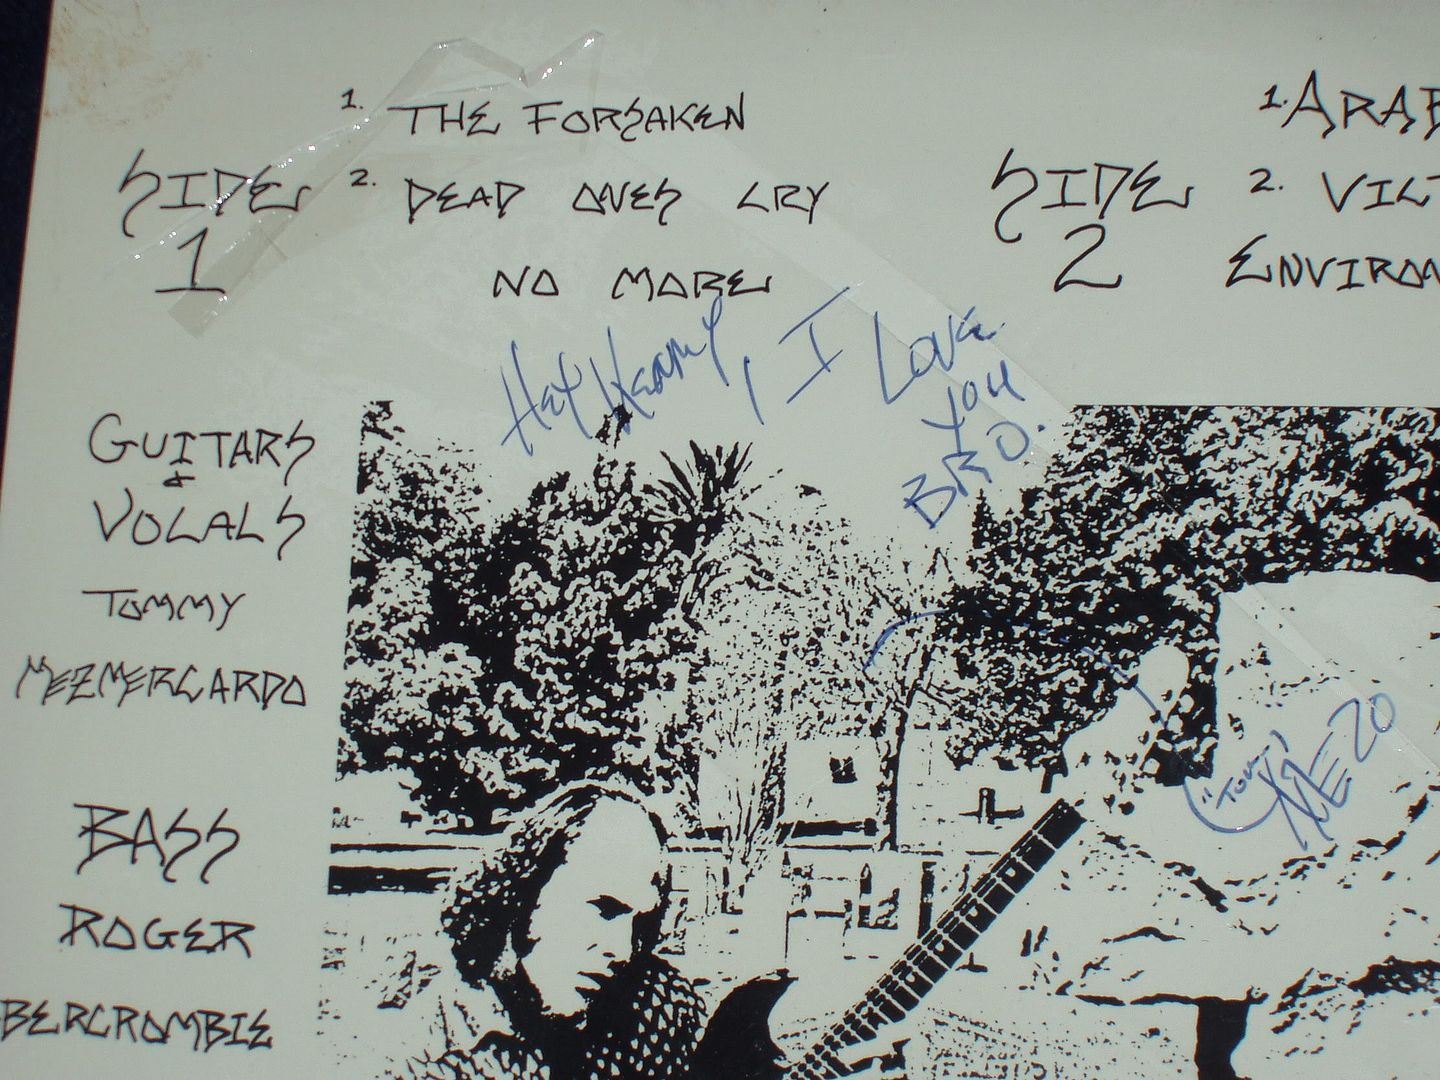 1. THE FORSAKEN
SIDE 1
2. DEAD ONES CRY
NO MORE
SIDE 2
1. ARAB
2. VIL
ENVIRON
HEY KENNY, I LOVE
YOU
BRO.
GUITARS
&
VOCALS
TOMMY
MEZMERCARDO
BASS
ROGER
BERCROMBIE
MEZO